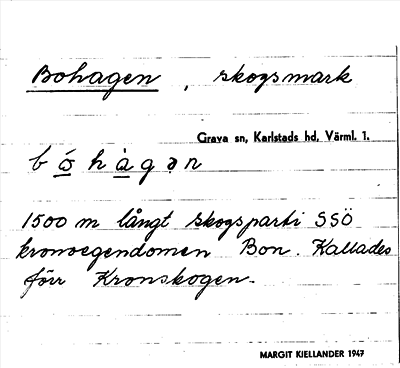 Bohagen, skogsmark
Grava sn, Karlstads hd, Värml. l.
bó̲hà̲gən
1500 m långt skogsparti SSÖ
kronoegendomen Bon. Kallades
förr Kronskogen.
MARGIT KIELLANDER 1947